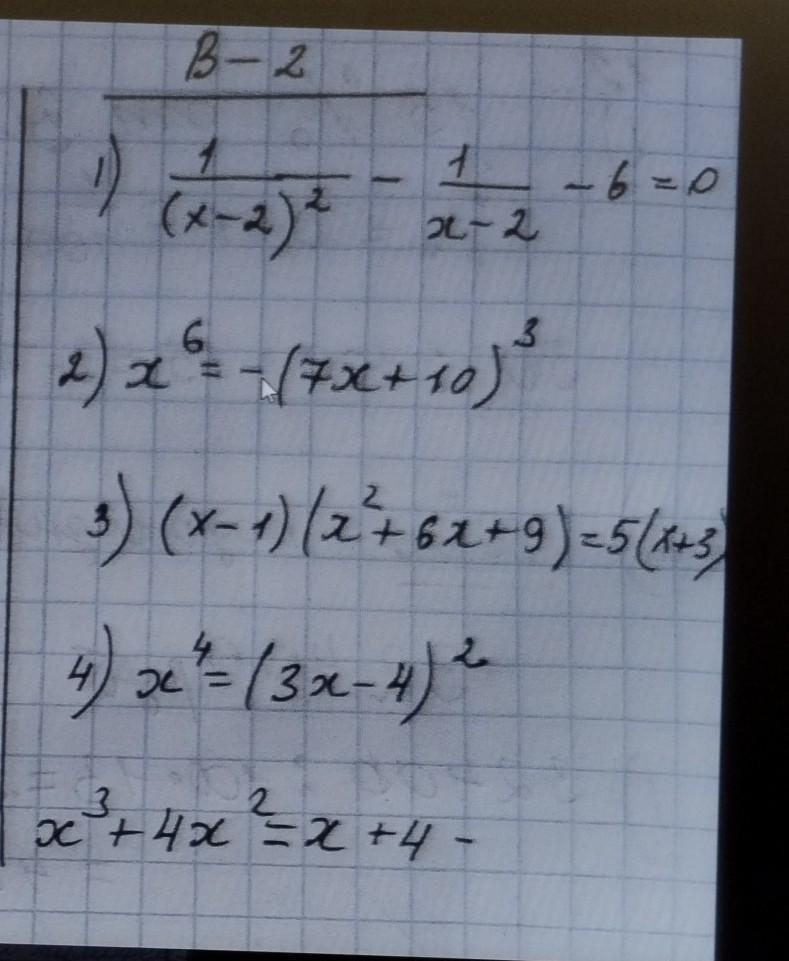 В – 2
1) 1/(x-2)² - 1/(x-2) - 6 = 0
2) x⁶ = -(7x+10)³
3) (x-1)(x²+6x+9)=5(x+3)
4) x⁴=(3x-4)²
x³+4x²=x+4 -